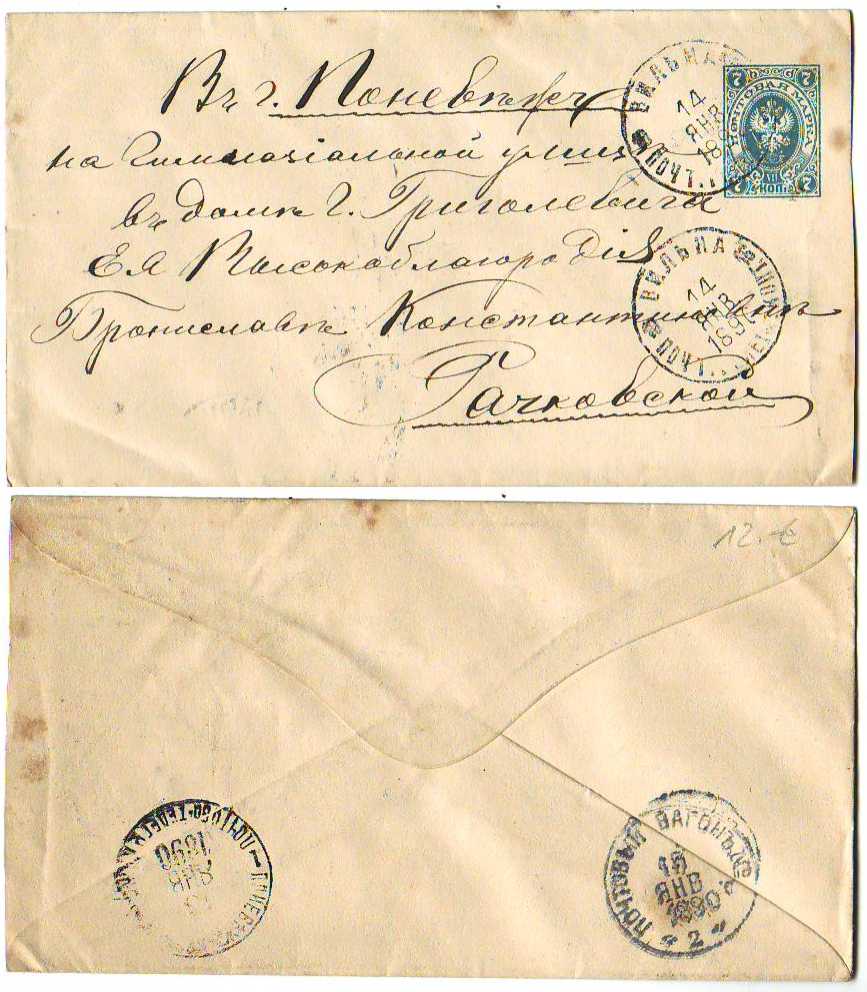 Въ г. Поневѣжъ
на Гимназіальной улицѣ
въ домѣ Г. Григолевича
Ея Высокоблагородію
Брониславѣ Константиновнѣ
Рачковской
ВИЛЬНА
14
ЯНВ
189
ПОЧТ
7 7
ПОЧТОВАЯ МАРКА
7 КОП. 7
ВИЛЬНА
14
ЯНВ
189
ПОЧТ
12.-€
ПОЧТОВО-ТЕЛЕГР
1890
ЯНВ
ПОНЕВѢЖ
ПОЧТОВЫЙ ВАГОНЪ №
15
ЯНВ
1890
"2"